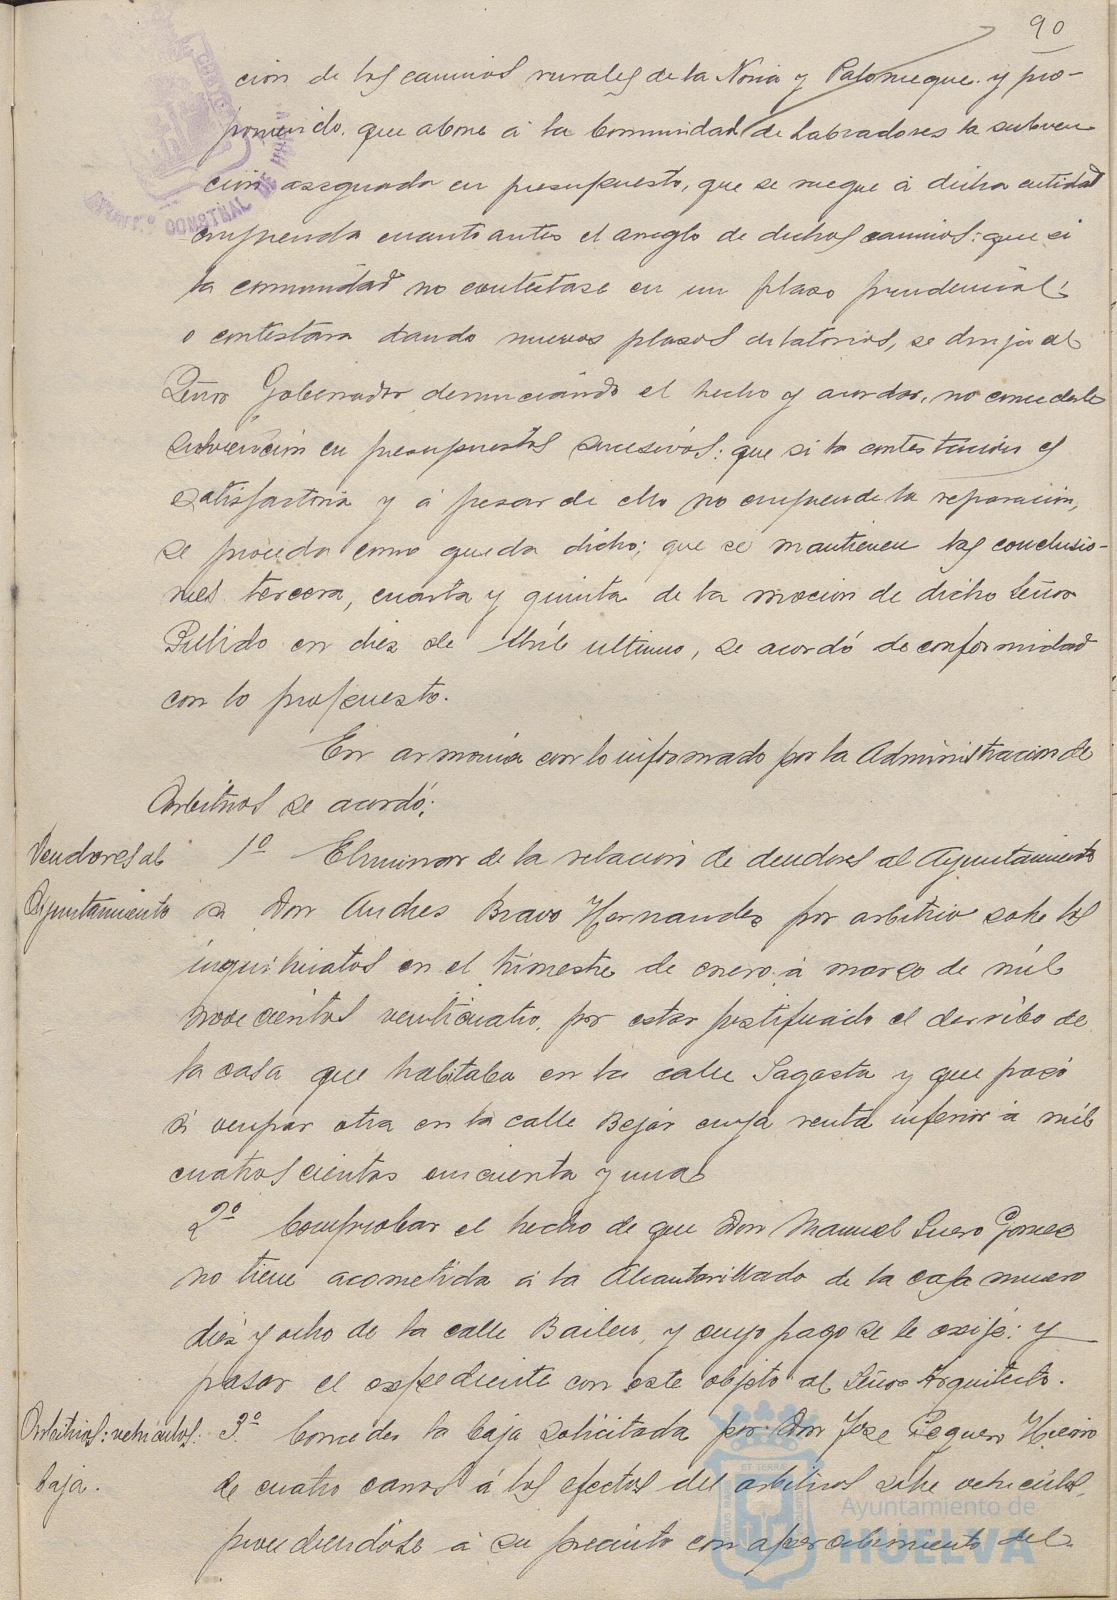 90
ción de los caminos rurales de la Noria y Palomeque y pro-
poniendo, que abone á la Comunidad de Labradores la subven
ción asegnada en presupuesto, que se ruegue á dicha entidad
emprenda cuanto antes el arreglo de dichos caminos: que si
la comunidad no contestase en un plazo prudencial
o contestara dando nuevos plazos dilatorios, se dirija al
Señor Gobernador denunciando el hecho y acordar, no concederle
subvención en presupuestos sucesivos: que si la contestación es
satisfactoria y á pesar de ello no emprende la reparación,
se proceda como queda dicho; que se mantienen las conclusio-
nes tercera, cuarta y quinta de la moción de dicho Señor
Pulido en diez de Abril ultimo, se acordó de conformidad
con lo propuesto.
En armonía con lo informado por la Administracion de
Arbitrios se acordó:
Deudores al
Ayuntamiento
1º Eliminar de la relación de deudores al Ayuntamiento
a Don Andres Bravo Hernandez por arbitrio sobre los
inquilinatos en el trimestre de enero á marzo de mil
novecientos veinticuatro, por estar justificado el derribo de
la casa que habitaba en la calle Sagasta y que pasó
á ocupar otra en la calle Bejar cuya renta inferior á mil
cuatroscientas cincuenta y una
2º Comprobar el hecho de que Don Manuel Suero Gomez
no tiene acometida á la Alcantarillado de la casa numero
diez y ocho de la calle Bailen, y cuyo pago se le exije: y
pasar el expediente con este objeto al Señor Arquitecto.
Arbitrios: vehículos:
baja.
3º Conceder la baja solicitada por Don Jose Peguero Hierro
de cuatro carros á los efectos del arbitrios sobre vehiculos,
procediendose á su precinto con apercibimiento del
Ayuntamiento de
HUELVA